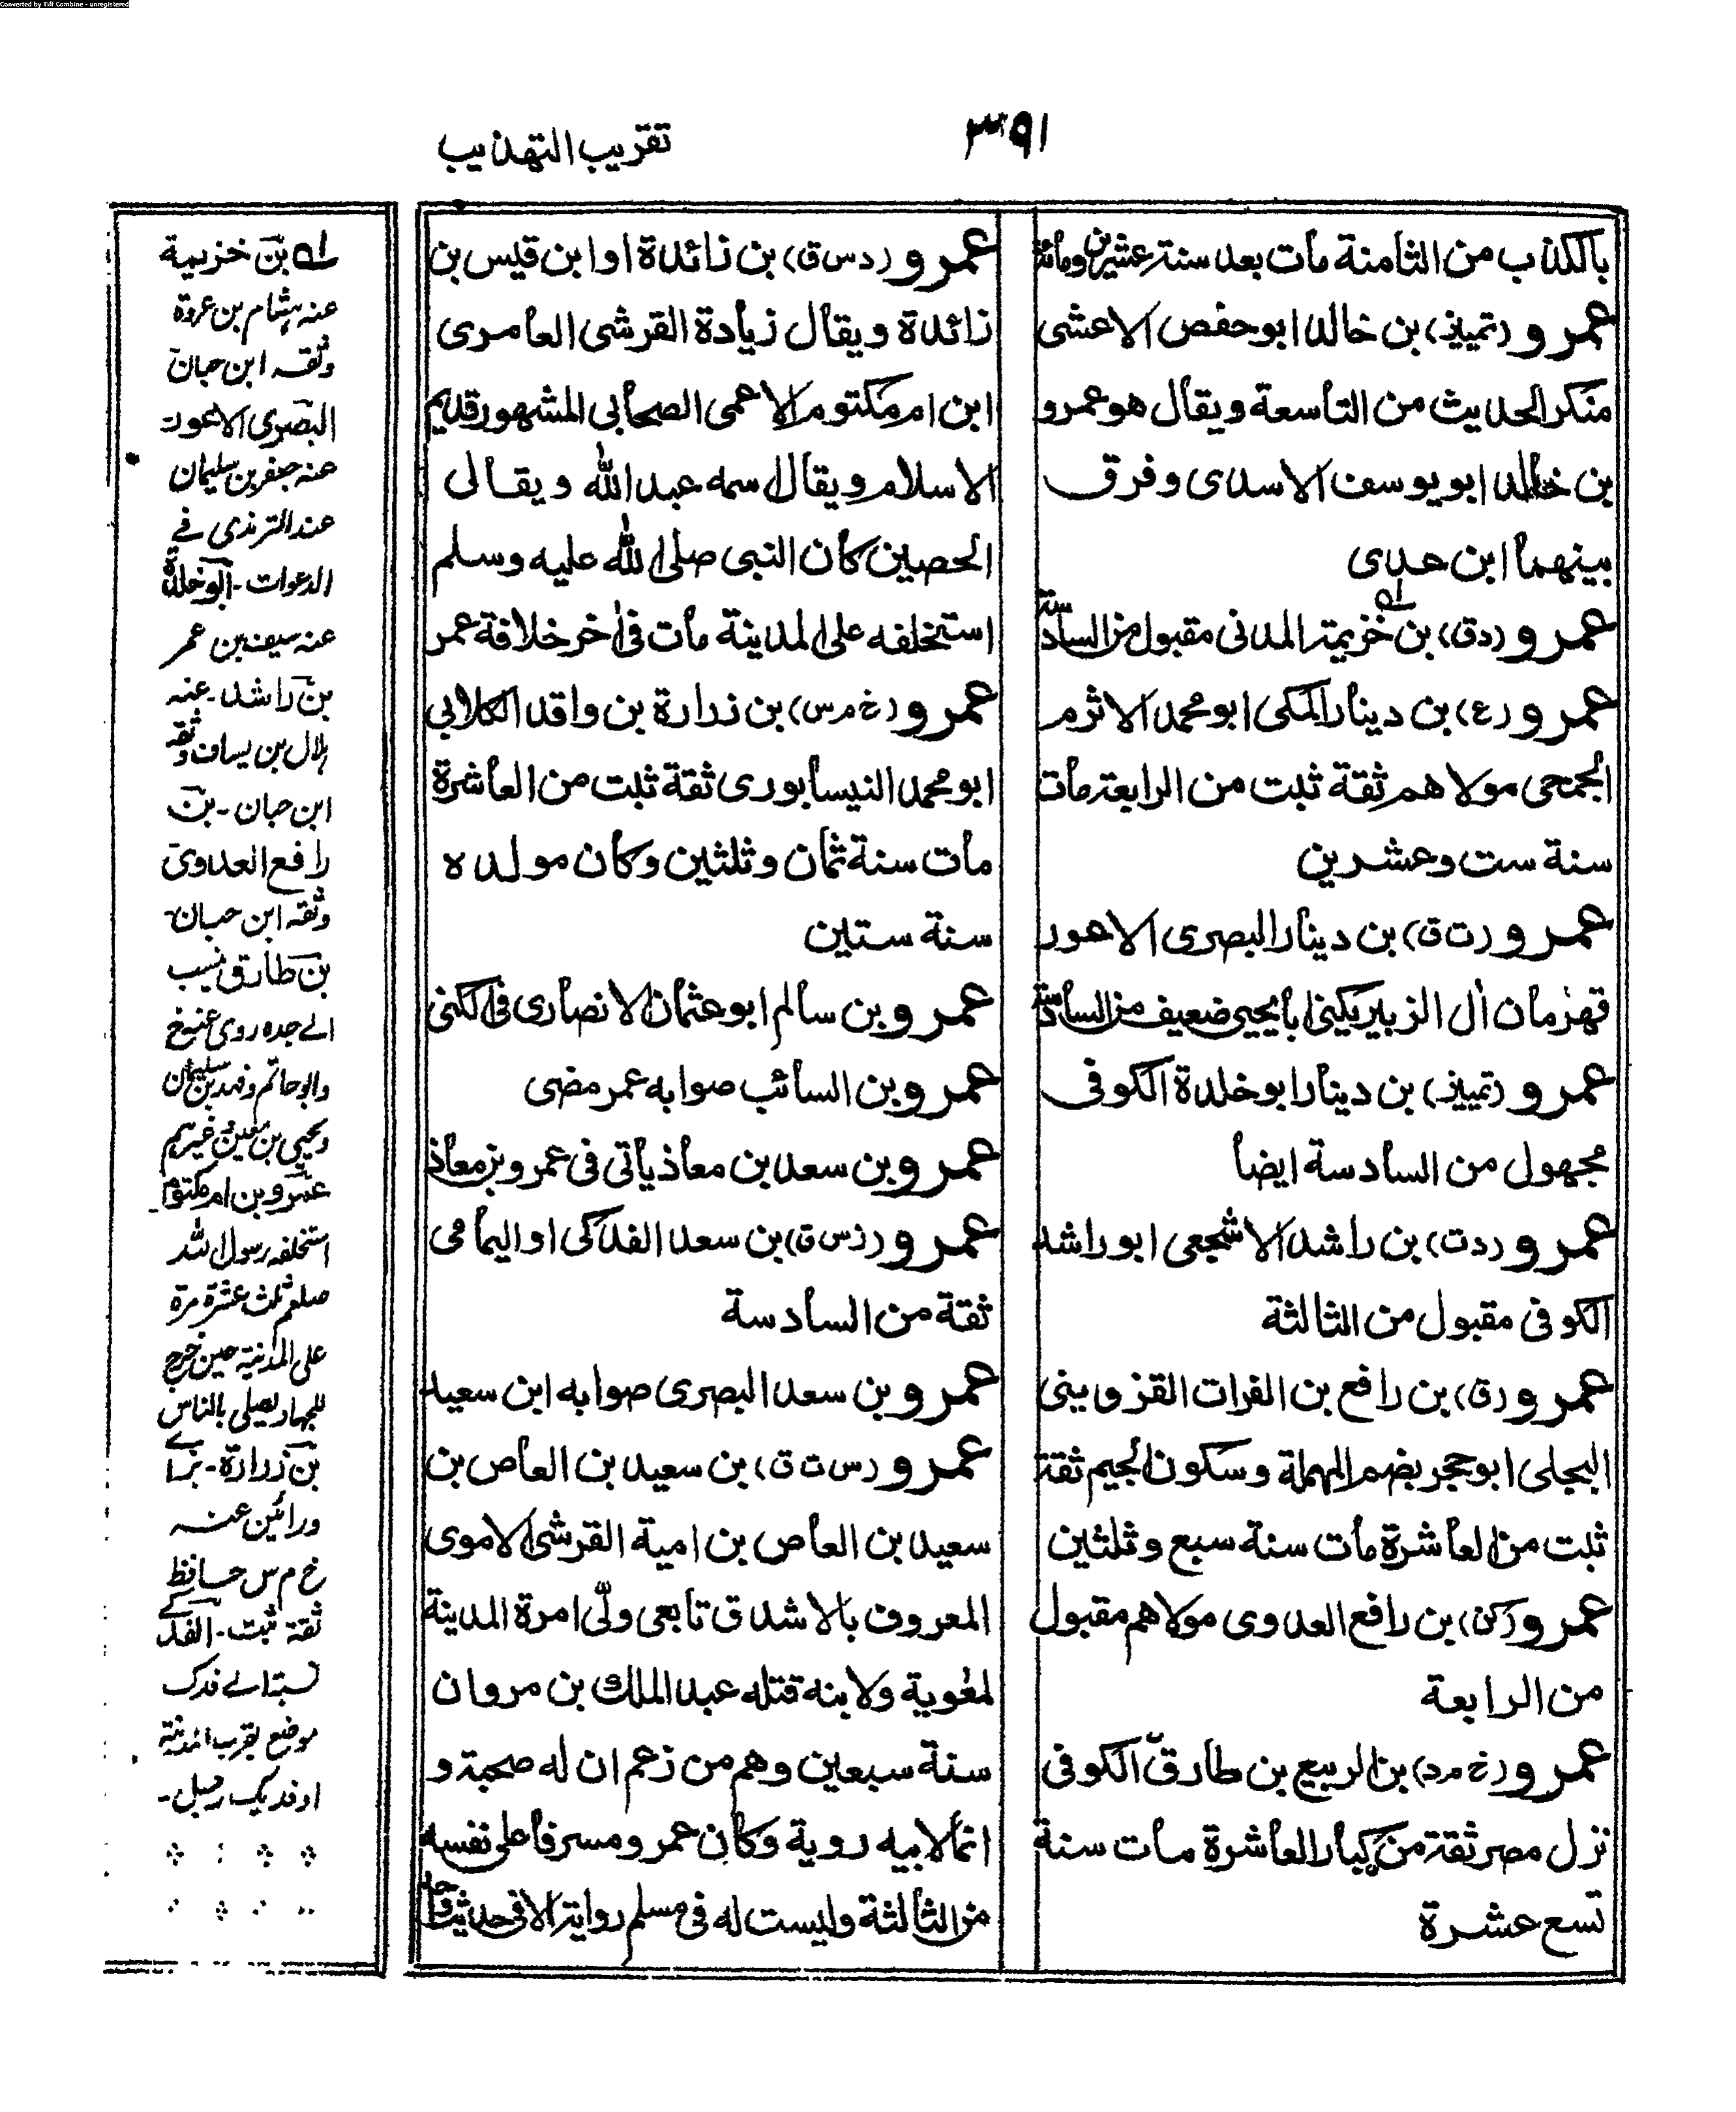 Converted by Tiff Combine - unregistered
٣٩١
تقريب التهذيب
بالكذب من الثامنة مات بعد سنة عشرين ومائة
عمرو (تمييز) بن خالد ابو حفص الاعشى
منكر الحديث من التاسعة ويقال هو عمرو
بن خالد ابو يوسف الاسدى وفرق
بينهما ابن عدى
عمرو (دق) بن خزيمة المدنى مقبول من السادسة
عمرو (ع) بن دينار المكى ابو محمد الاثرم
الجمحى مولاهم ثقة ثبت من الرابعة مات
سنة ست وعشرين
عمرو (ت ق) بن دينار البصرى الاعور
قهرمان أل الزبير يكنى أبا يحيى ضعيف من السادسة
عمرو (تمييز) بن دينار ابو خلدة الكوفى
مجهول من السادسة ايضا
عمرو (دت) بن راشد الاشجعى ابو راشد
الكوفى مقبول من الثالثة
عمرو (ق) بن رافع بن الفرات القزوينى
البجلى ابو حجر بضم المهملة وسكون الجيم ثقة
ثبت من العاشرة مات سنة سبع وثلثين
عمرو (كن) بن رافع العدوى مولاهم مقبول
من الرابعة
عمرو (خ مد) بن الربيع بن طارق الكوفى
نزل مصر ثقة من كبار العاشرة مات سنة
تسع عشرة
عمرو (دس ق) بن زائدة او ابن قيس بن
زائدة ويقال زيادة القرشى العامرى
ابن ام مكتوم الاعمى الصحابى المشهور قديم
الاسلام ويقال اسمه عبد الله ويقال
الحصين كان النبى صلى الله عليه وسلم
استخلفه على المدينة مات فى أخر خلافة عمر
عمرو (خ م س) بن زرارة بن واقد الكلابى
ابو محمد النيسابورى ثقة ثبت من العاشرة
مات سنة ثمان وثلثين وكان مولده
سنة ستين
عمرو بن سالم ابو عثمان الانصارى فى الكنى
عمرو بن السائب صوابه عمر مضى
عمرو بن سعد بن معاذ يأتى فى عمرو بن معاذ
عمرو (ز س ق) بن سعد الفدكى او اليمامى
ثقة من السادسة
عمرو بن سعد البصرى صوابه ابن سعيد
عمرو (س ت ق) بن سعيد بن العاص بن
سعيد بن العاص بن امية القرشى الاموى
المعروف بالاشدق تابعى ولّى امرة المدينة
لمعوية ولابنه قتله عبد الملك بن مروان
سنة سبعين وهم من زعم ان له صحبة و
انما لابيه روية وكان عمرو مسرفا على نفسه
من الثالثة وليست له فى مسلم رواية الا فى حديث واحد
له بن خزيمة
عنه هشام بن عروة
وثقه ابن حبان
البصرى الاعور
عنه جعفر بن سليمان
عند الترمذى فے
الدعوات - ابو خلدة
عنه سيف بن عمر
بن راشد - عنه
هلال بن يساف وثقه
ابن حبان - بن
رافع العدوى
وثقه ابن حبان
بن طارق نسب
الے جده روى عنه خ
وابو حاتم وفهد بن سليمان
ويحيى بن معين وغيرهم
عمرو بن ام مكتوم
استخلفه رسول الله
صلعم ثلث عشرة مرة
على المدينة حين خرج
للجهاد يصلى بالناس
بن زرارة - براء
ورائين عنه
خ م س حافظ
ثقة ثبت - الفدكے
نسبة الے فدك
موضع بقرب المدينة
او فديك رجل -